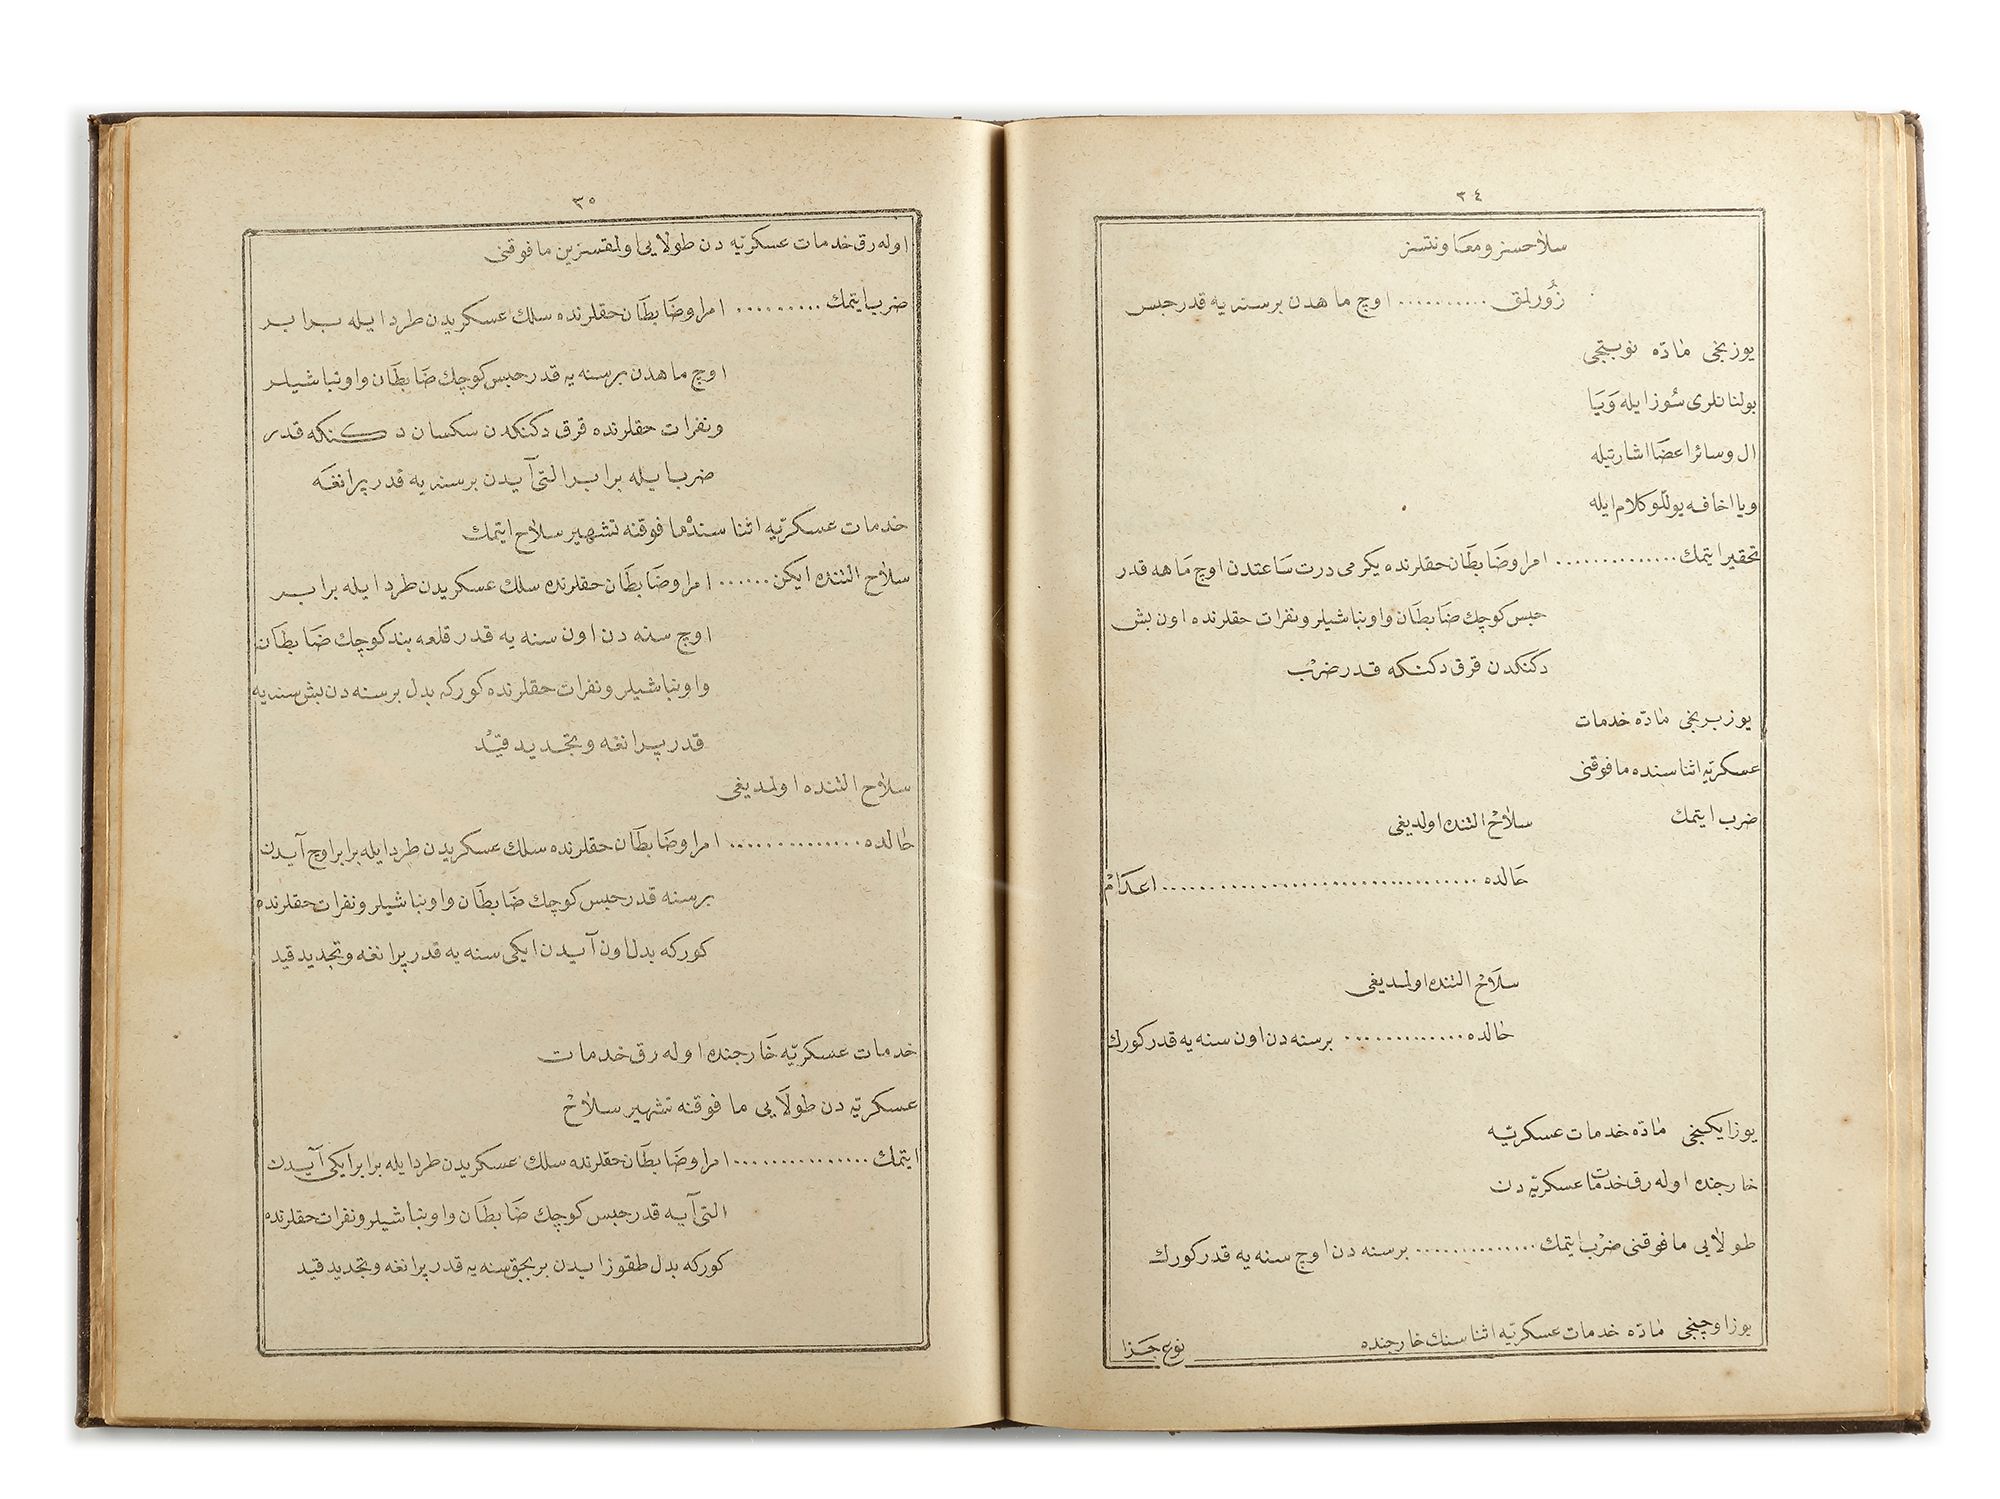 ٣٤
سلاحسز و معاونتسز
زُورلمق .......... اوچ ماهدن برسنه یه قدر حبس
یوزنجی مادّه نوبتجی
بولنانلری سُوز ایله وَیَا
ال و سائر اعضا اشارتیله
ویا اخافه یوللو كلام ایله
تحقیر ایتمك .............. امرا وضابطان حقلرنده یكرمی درت ساعتدن اوچ ماهه قدر
حبس كوچك ضابطان واونباشیلر ونفرات حقلرنده اون بش
دكنكدن قرق دكنكه قدر ضرب
یوز برنجی مادّه خدمات
عسكریّه اثناسنده مافوقنی
ضرب ایتمك سلاح التنده اولدیغی
حالده .................................. اعدام
سلاح التنده اولمدیغی
حالده .............. برسنه دن اون سنه یه قدر كورك
یوز ایكنجی مادّه خدمات عسكریّه
خارجنده اوله رق خدمات عسكریّه دن
طولایی مافوقنی ضرب ایتمك .............. برسنه دن اوچ سنه یه قدر كورك
یوز اوچنجی مادّه خدمات عسكریّه اثناسنك خارجنده
نوع جزا
٣٥
اوله رق خدمات عسكریّه دن طولایی اولمقسزین مافوقنی
ضرب ایتمك .......... امرا وضابطان حقلرنده سلك عسكریدن طرد ایله برابر
اوچ ماهدن برسنه یه قدر حبس كوچك ضابطان واونباشیلر
ونفرات حقلرنده قرق دكنكدن سكسان دكنكه قدر
ضرب ایله برابر التی آیدن برسنه یه قدر پرانغه
خدمات عسكریّه اثناسنده مافوقنه تشهیر سلاح ایتمك
سلاح التنده ایكن ...... امرا وضابطان حقلرنده سلك عسكریدن طرد ایله برابر
اوچ سنه دن اون سنه یه قدر قلعه بند كوچك ضابطان
واونباشیلر ونفرات حقلرنده كوركه بدل برسنه دن بش سنه یه
قدر پرانغه وتجدید قید
سلاح التنده اولمدیغی
حالده .............. امرا وضابطان حقلرنده سلك عسكریدن طرد ایله برابر اوچ آیدن
برسنه قدر حبس كوچك ضابطان واونباشیلر ونفرات حقلرنده
كوركه بدل اون آیدن ایكی سنه یه قدر پرانغه وتجدید قید
خدمات عسكریّه خارجنده اوله رق خدمات
عسكریّه دن طولایی مافوقنه تشهیر سلاح
ایتمك ............... امرا وضابطان حقلرنده سلك عسكریدن طرد ایله برابر ایكی آیدن
التی آیه قدر حبس كوچك ضابطان واونباشیلر ونفرات حقلرنده
كوركه بدل طقوز ایدن بربچق سنه یه قدر پرانغه وتجدید قید